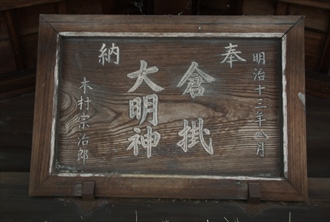 奉
納
明治十三年八月
倉掛
大明神
木村宗治郎